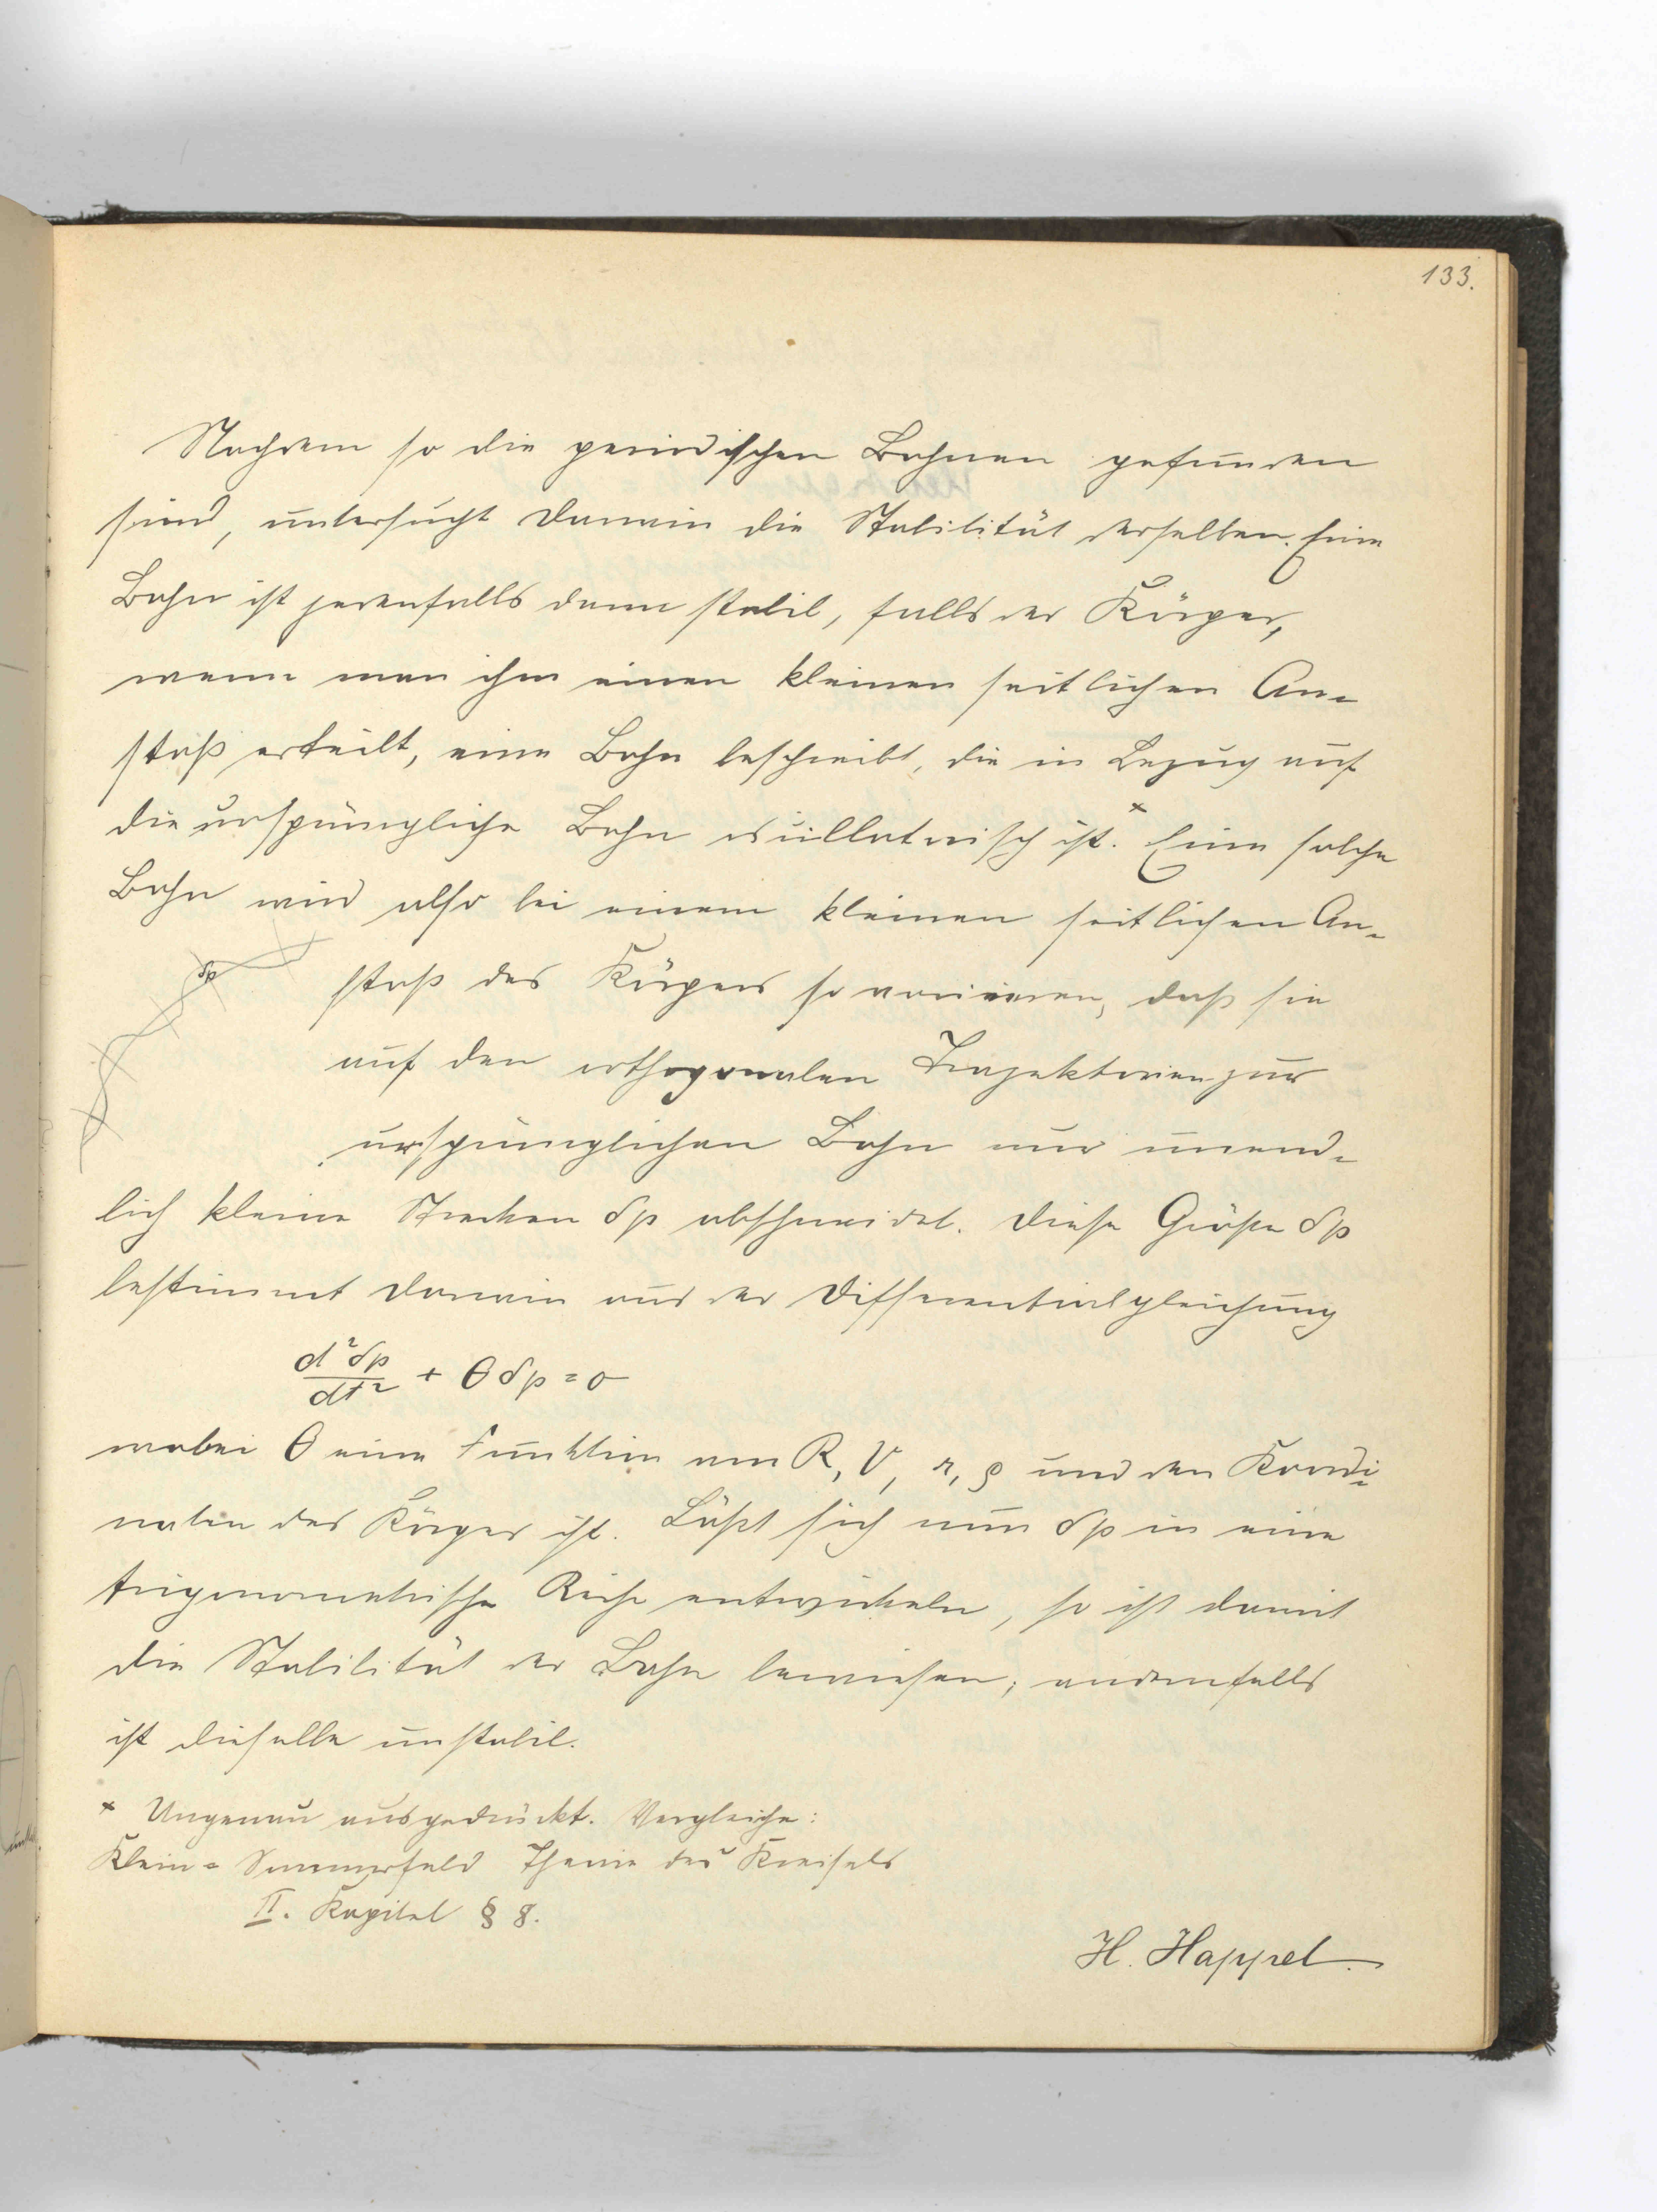 133.
Nachdem so die periodischen Bahnen gefunden
sind, untersucht Darwin die Stabilität derselben. Eine
Bahn ist jedenfalls dann stabil, falls der Körper,
wenn man ihm einen kleinen seitlichen An-
stoß erteilt, eine Bahn beschreibt, die in Bezug auf
die ursprüngliche Bahn oscillatorisch ist.× Eine solche
Bahn wird also bei einem kleinen seitlichen An-
stoß des Körpers so variieren, daß sie
δp
auf den orthogonalen Trajektorien zur
ursprünglichen Bahn nur unend-
lich kleine Strecken δp abschneidet. Diese Größe δp
bestimmt Darwin aus der Differentialgleichung
d²δp/dt² + θ δp = 0
wobei θ eine Funktion von R, V, r, ρ und den Koordi-
naten des Körpers ist. Läßt sich nun δp in eine
trigonometrische Reihe entwickeln, so ist damit
die Stabilität der Bahn bewiesen; andernfalls
ist dieselbe unstabil.
× Ungenau ausgedrückt. Vergleiche:
Klein-Sommerfeld Theorie des Kreisels
II. Kapitel § 8.
H. Happel.